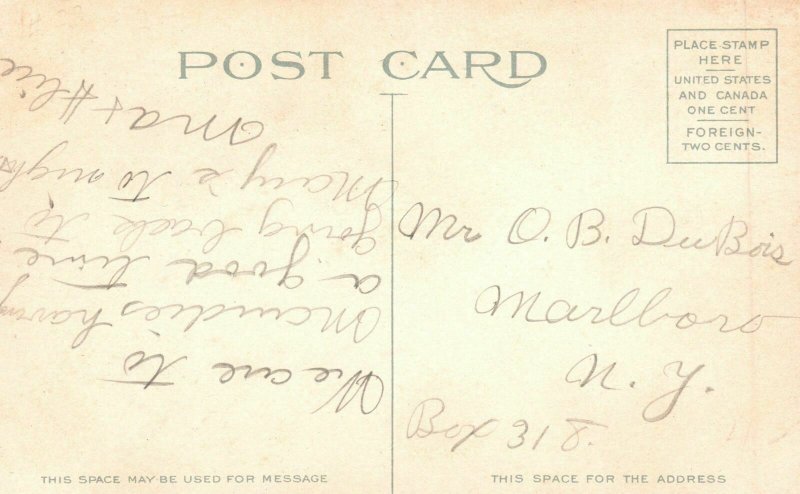 POST CARD
PLACE STAMP
HERE
UNITED STATES
AND CANADA
ONE CENT
FOREIGN-
TWO CENTS.
We are to
Maudies having
a good time
going back to
Mary's to night
Ma + Alice
Mr O. B. DuBois
Marlboro
N. Y.
Box 318.
THIS SPACE MAY BE USED FOR MESSAGE
THIS SPACE FOR THE ADDRESS